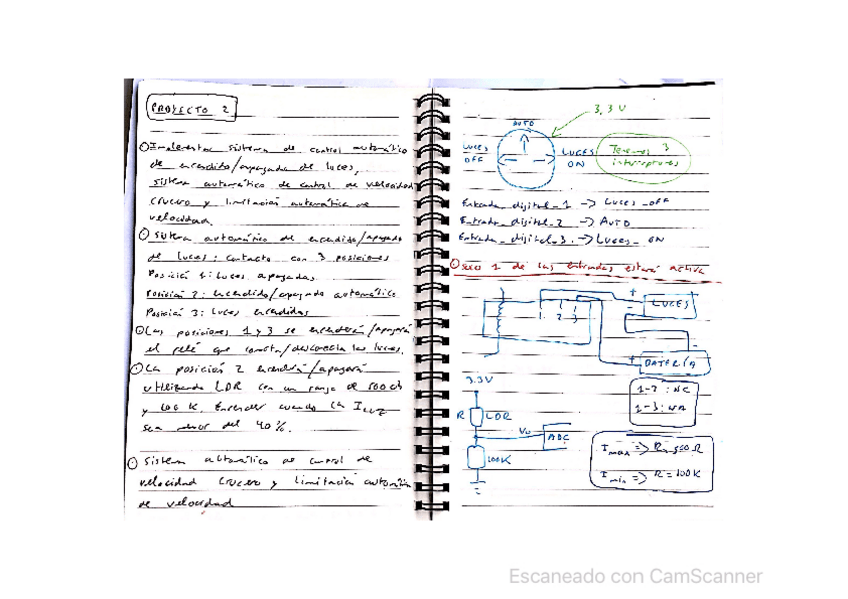 PROYECTO 2
Implementar sistema de control automático
de encendido/apagado de luces,
sistema automático de control de velocidad
crucero y limitación automática de
velocidad.
Sistema automático de encendido/apagado
de luces: contacto con 3 posiciones
Posición 1: Luces apagadas.
Posición 2: encendido/apagado automático
Posición 3: luces encendidas
Las posiciones 1 y 3 se encenderán/apagará
el relé que conecta/desconecta las luces.
La posición 2 encenderá/apagará
utilizando LDR con un rango de 500 oh
y 100 K. Encender cuando la I LUZ
sea menor del 40%.
Sistema automático de control de
velocidad crucero y limitación automática
de velocidad
3,3 V
AUTO
LUCES
OFF
LUCES
ON
Tenemos 3
interruptores
Entrada_digital_1 -> Luces_OFF
Entrada_digital_2 -> AUTO
Entrada_digital_3 -> Luces_ON
Solo 1 de las entradas estará activa
1 2 3
+
-
LUCES
+
BATERÍA
3.3V
R
LDR
Vo
ADC
100K
1-2: NC
1-3: NA
I max => R=500 Ω
I min => R=100K
Escaneado con CamScanner